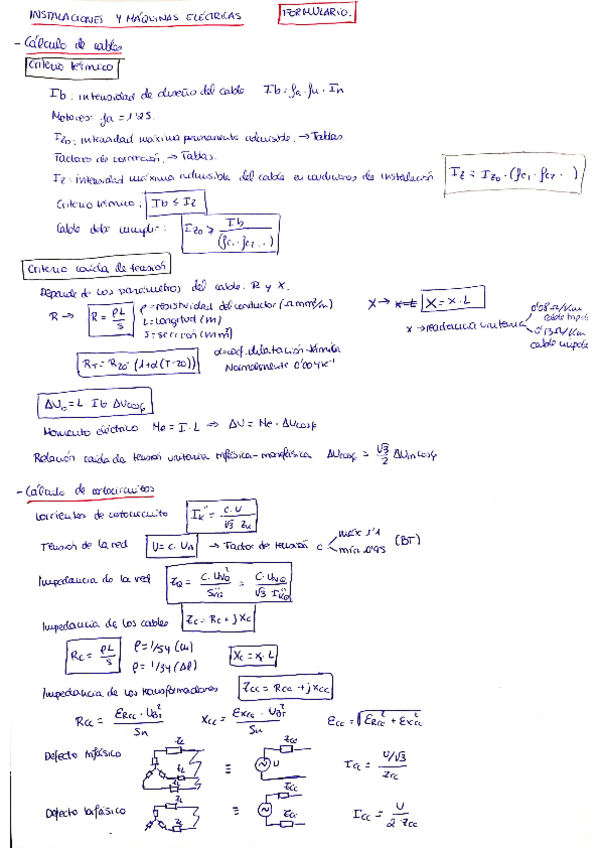 INSTALACIONES Y MÁQUINAS ELÉCTRICAS FORMULARIO.
- Cálculo de cables
Criterio térmico
Ib: intensidad de diseño del cable Ib = fa · fu · In
Motores: fa = 1'25.
Iz0: intensidad máxima permanente admisible. → Tablas
Factores de corrección. → Tablas.
Iz: intensidad máxima admisible del cable en condiciones de instalación Iz = Iz0 · (fc1 · fc2 ...)
Criterio térmico: Ib ≤ Iz
Cable debe cumplir: Iz0 > Ib / (fc1 · fc2 ...)
Criterio caída de tensión
Depende de los parámetros del cable. R y X.
R → R = ρL/S ρ = resistividad del conductor (Ω mm²/m) X → X = x · L
L = longitud (m) x → reactancia unitaria 0'08 Ω/Km
S = sección (mm²) 0'13 Ω/Km
RT = R20 · (1+α(T-20)) α = coef. dilatación térmica
Normalmente 0'004 K⁻¹
ΔUc = L · Ib · ΔUcosφ
Momento eléctrico Me = I · L ⇒ ΔU = Me · ΔUcosφ
Relación caída de tensión unitaria trifásica-monofásica ΔUcosφ = √3/2 ΔUmcosφ
- Cálculo de cortocircuitos
Corrientes de cortocircuito Ik'' = c · U / √3 Zk
Tensión de la red U = c · Un → Factor de tensión c máx 1'1 (BT)
mín 0'95
Impedancia de la red ZQ = C · UnQ² / SkQ'' = C · UnQ / √3 IkQ''
Impedancia de los cables Zc = Rc + jXc
Rc = ρL/S ρ = 1/54 (Cu) Xc = x · L
ρ = 1/34 (Al)
Impedancia de los transformadores Zcc = Rcc + jXcc
Rcc = εRcc · UBT² / Sn Xcc = εXcc · UBT² / Sn εcc = √(εRcc² + εXcc²)
Defecto trifásico ZL ZL ZL ≡ Zcc U Icc = U/√3 / Zcc
Defecto bifásico ZL ≡ Zcc Zcc Icc = U / 2 Zcc